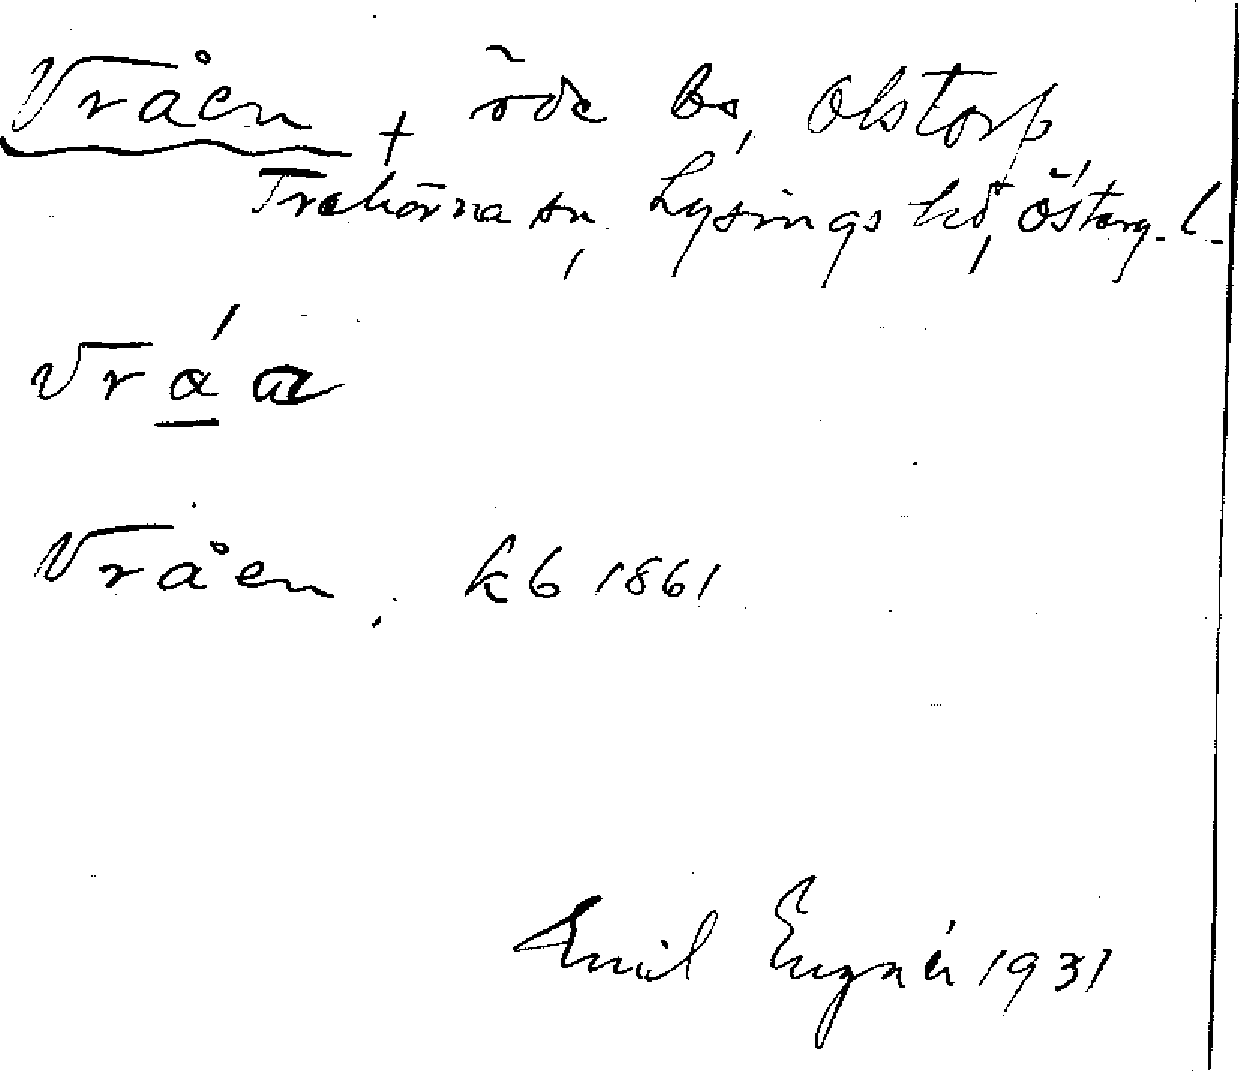 Vråen + öde bs, Olstorp
Trehörna sn, Lysings hd, Östergl.
vráa
Vråen, kb 1861
Emil Engnér 1931